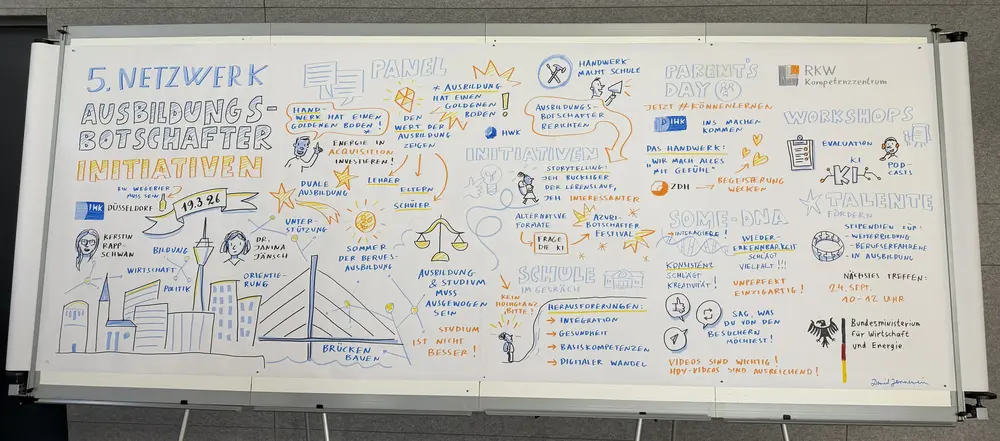 5. NETZWERK
AUSBILDUNGS-
BOTSCHAFTER
INITIATIVEN
EIN WEGBEREITER
MUSS SEIN
IHK DÜSSELDORF
19.3.26
KERSTIN
RAPP-
SCHWAN
BILDUNG
WIRTSCHAFT
POLITIK
DR.
JANINA
JÄNSCH
ORIENTIE-
RUNG
UNTER-
STÜTZUNG
BRÜCKEN
BAUEN
PANEL
HAND-
WERK HAT EINEN
GOLDENEN BODEN!
ENERGIE IN
ACQUISITION
INVESTIEREN!
DUALE
AUSBILDUNG
DEN
WERT DER
AUSBILDUNG
ZEIGEN
LEHRER
ELTERN
SCHÜLER
* AUSBILDUNG
HAT EINEN
GOLDENEN
BODEN!
SOMMER
DER BERUFS-
AUSBILDUNG
AUSBILDUNG
& STUDIUM
MUSS
AUSGEWOGEN
SEIN
STUDIUM
IST NICHT
BESSER!
HANDWERK
MACHT SCHULE
HWK
AUSBILDUNGS-
BOTSCHAFTER
BERICHTEN
INITIATIVEN
STORYTELLING:
JEH BUCKLIGER
DER LEBENSLAUF,
JEH INTERESSANTER
ALTERNATIVE
FORMATE
FRAGE
DIE KI
AZUBI-
BOTSCHAFTER
FESTIVAL
SCHULE
IM GESPRÄCH
KEIN
HOCHGLANZ
BITTE!
HERAUSFORERUNGEN:
→ INTEGRATION
→ GESUNDHEIT
→ BASISKOMPETENZEN
→ DIGITALER WANDEL
PARENT'S
DAY
JETZT #KÖNNENLERNEN
DIHK
INS MACHEN
KOMMEN
DAS HANDWERK:
"WIR MACH ALLES
MIT GEFÜHL"
ZDH → BEGEISTERUNG
WECKEN
SOME-DNA
INTERAGIERE!
WIEDER-
ERKENNBARKEIT
SCHLÄGT
VIELFALT!!!
KONSISTENZ
SCHLÄGT
KREATIVITÄT!
UNPERFEKT
EINZIGARTIG!
SAG, WAS
DU VON DEN
BESUCHERN
MÖCHTEST!
VIDEOS SIND WICHTIG!
HDY-VIDEOS SIND AUSREICHEND!
RKW
Kompetenzzentrum
WORKSHOPS
EVALUATION
KI
KI
POD-
CASTS
TALENTE
FÖRDERN
STIPENDIEN FÜR:
- WEITERBILDUNG
- BERUFSERFAHRENE
IN AUSBILDUNG
NÄCHSTES TREFFEN:
24. SEPT.
10-12 UHR
Bundesministerium
für Wirtschaft
und Energie